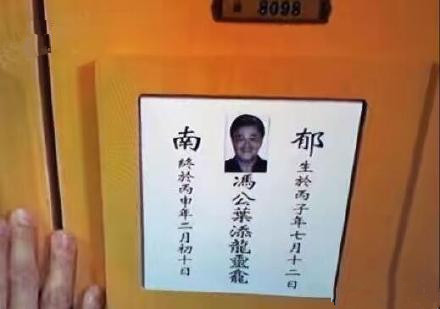 8098
郁
生於丙子年七月十二日
馮公葉添龍靈龕
南
終於丙申年二月初十日